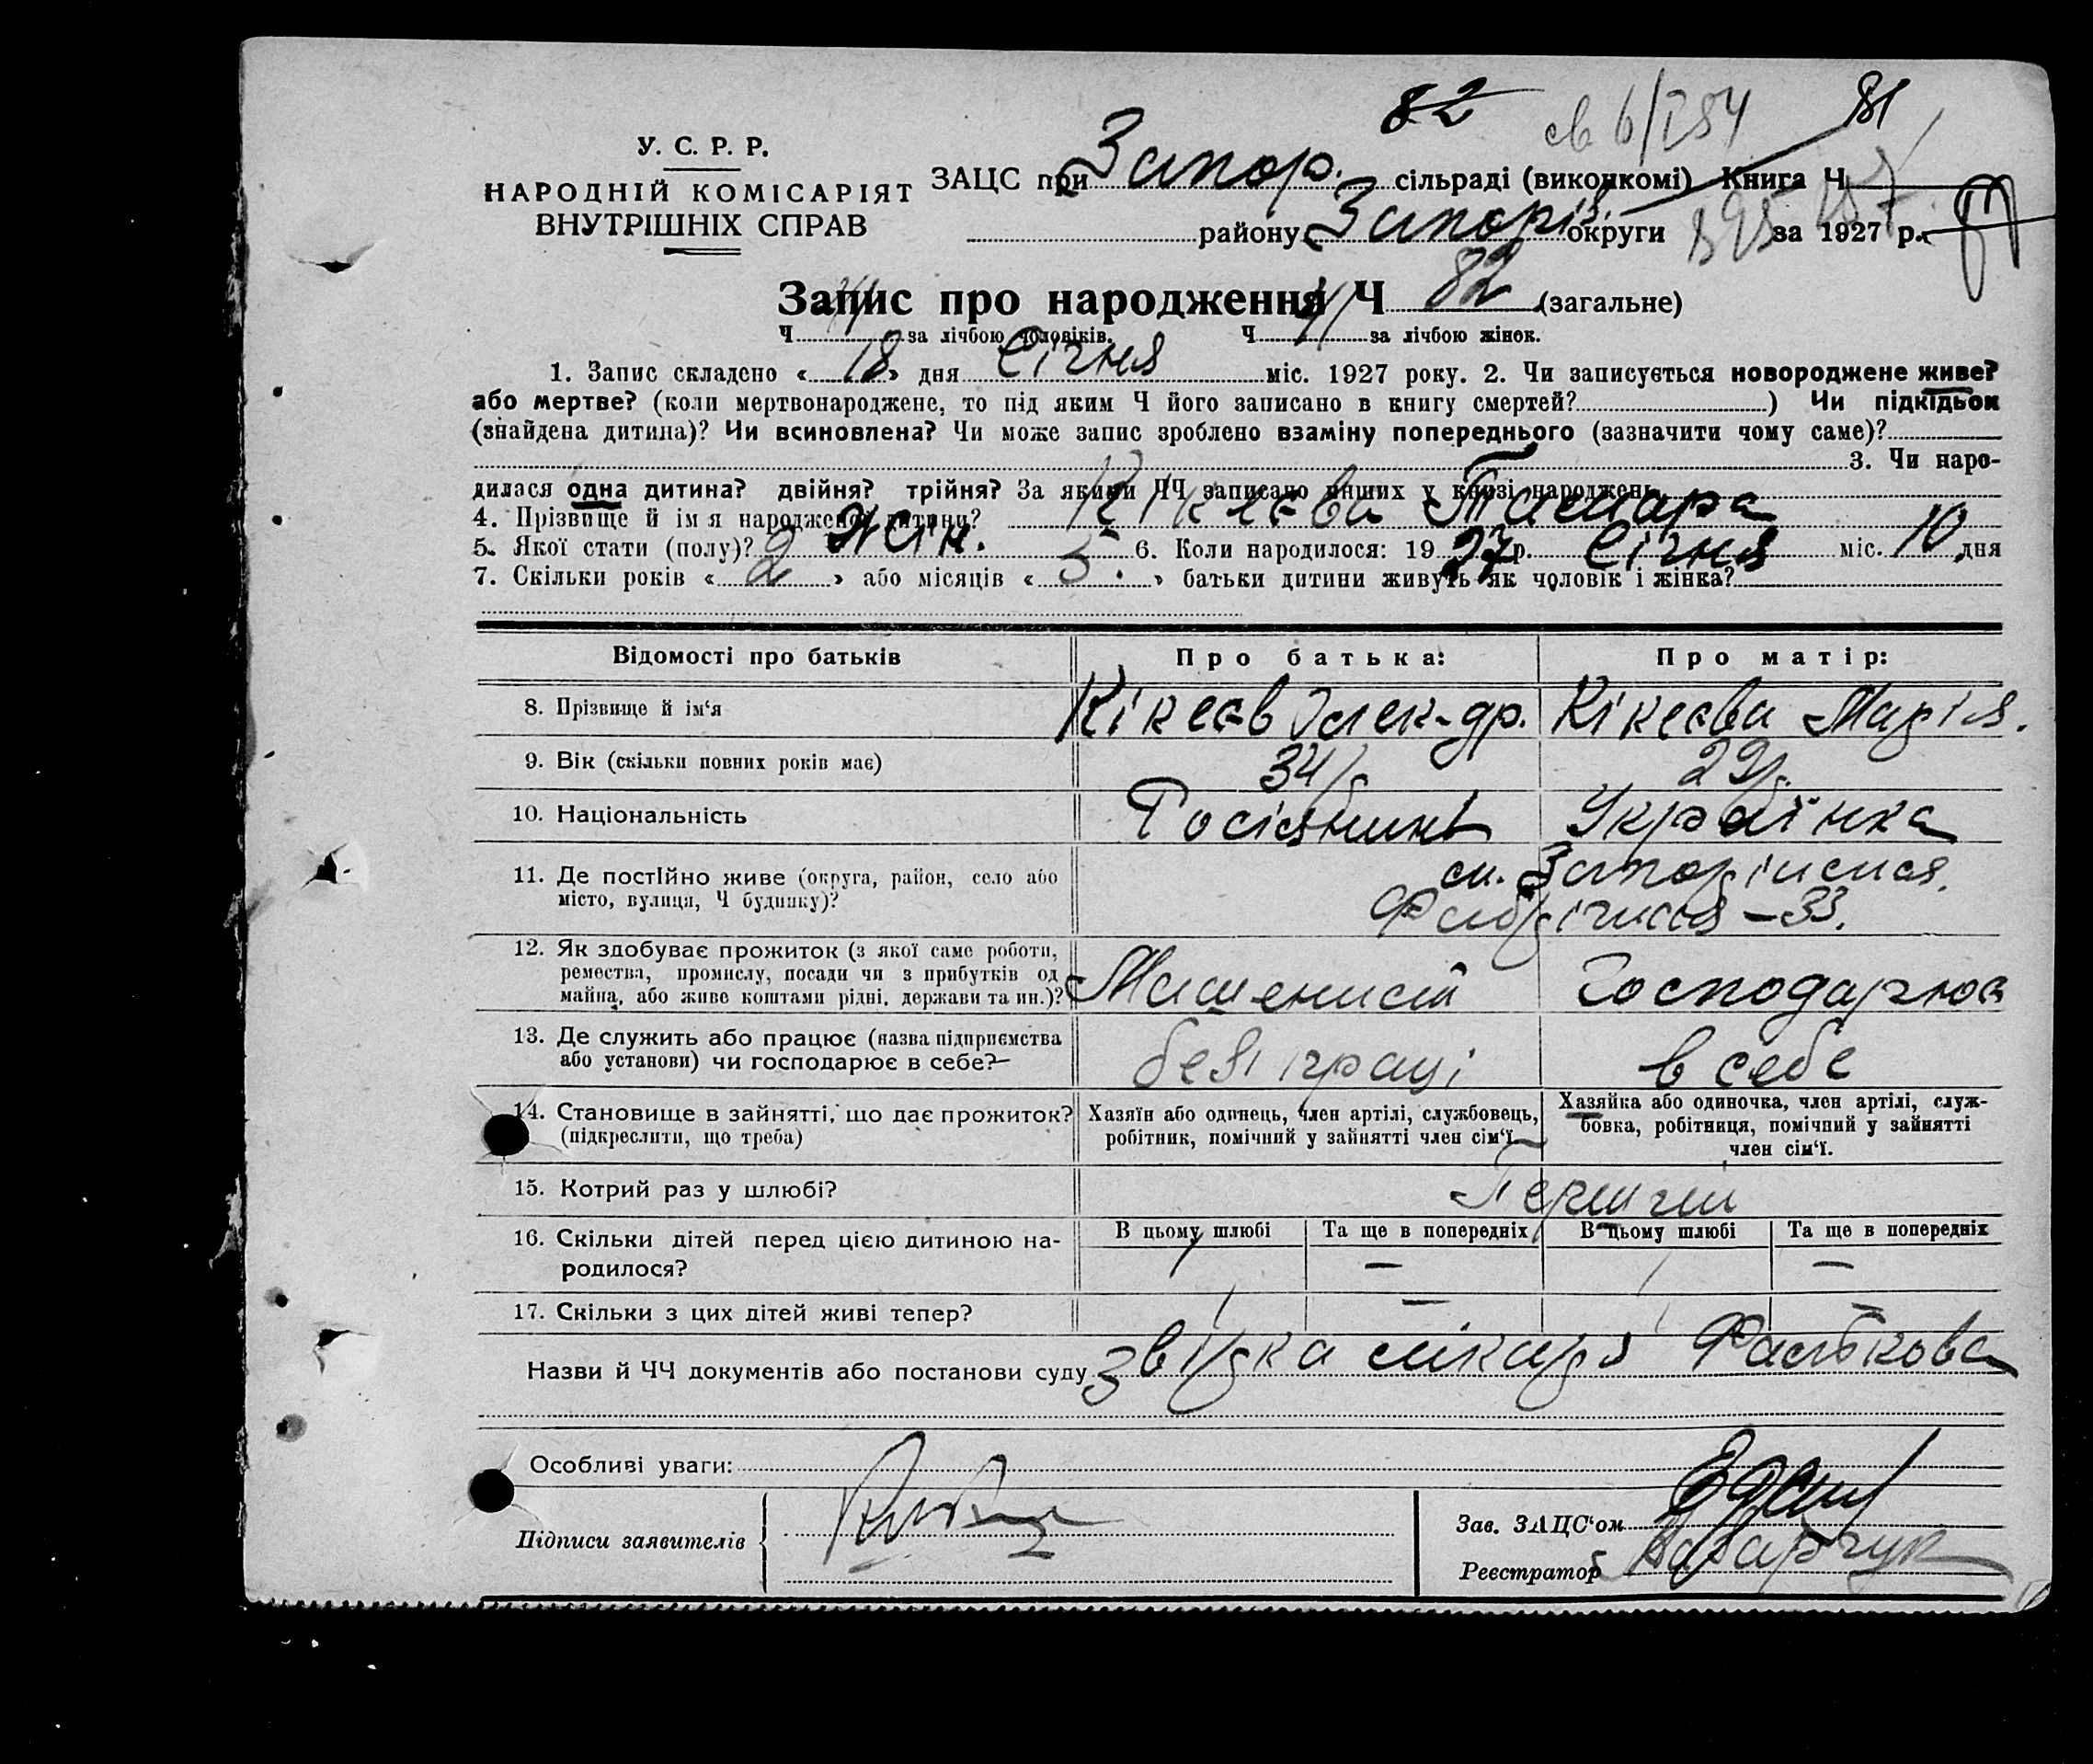 82 св 6/254 81
У. С. Р. Р.
НАРОДНІЙ КОМІСАРІЯТ
ВНУТРІШНІХ СПРАВ
ЗАЦС при Запор. сільраді (виконкомі) Книга Ч
району Запоріз. округи за 1927 р.
Запис про народження Ч 82 (загальне)
Ч за лічбою чоловіків. Ч 41 за лічбою жінок.
1. Запис складено « 18 » дня Січня міс. 1927 року. 2. Чи записується новороджене живе?
або мертве? (коли мертвонароджене, то під яким Ч його записано в книгу смертей?) Чи підкідьок
(знайдена дитина)? Чи всиновлена? Чи може запис зроблено взаміну попереднього (зазначити чому саме)?
3. Чи наро-
дилася одна дитина? двійня? трійня? За якими ЧЧ записано инших у книзі народжень
4. Прізвище й ім'я народженої дитини? Кікеєва Тамара
5. Якої стати (полу)? Жін. 6. Коли народилося: 1927 р. Січня міс. 10 дня
7. Скільки років « 2 » або місяців « 5. » батьки дитини живуть як чоловік і жінка?
Відомості про батьків Про батька: Про матір:
8. Прізвище й ім'я Кікеєв Олек-др. Кікеєва Марія.
9. Вік (скільки повних років має) 34 р 29 р.
10. Національність Росіянинъ Українка
11. Де постійно живе (округа, район, село або
місто, вулиця, Ч будинку)? Фабрічная – 33.
12. Як здобуває прожиток (з якої саме роботи,
ремества, промислу, посади чи з прибутків од
майна, або живе коштами рідні, держави та ин.)? Машеніст Господарює
13. Де служить або працює (назва підприємства
або установи) чи господарює в себе? без праці в себе
14. Становище в зайнятті, що дає прожиток?
(підкреслити, що треба)
Хазяїн або одинець, член артілі, службовець,
робітник, помічний у зайнятті член сім'ї.
Хазяйка або одиночка, член артілі, служ-
бовка, робітниця, помічний у зайнятті
член сім'ї.
15. Котрий раз у шлюбі? Перший
В цьому шлюбі Та ще в попередніх В цьому шлюбі Та ще в попередніх
16. Скільки дітей перед цією дитиною на-
родилося? 1 — 1 —
17. Скільки з цих дітей живі тепер? 1 — 1 —
Назви й ЧЧ документів або постанови суду Звідка лікаря
Особливі уваги:
Підписи заявителів
Зав. ЗАЦС'ом
Реєстратор